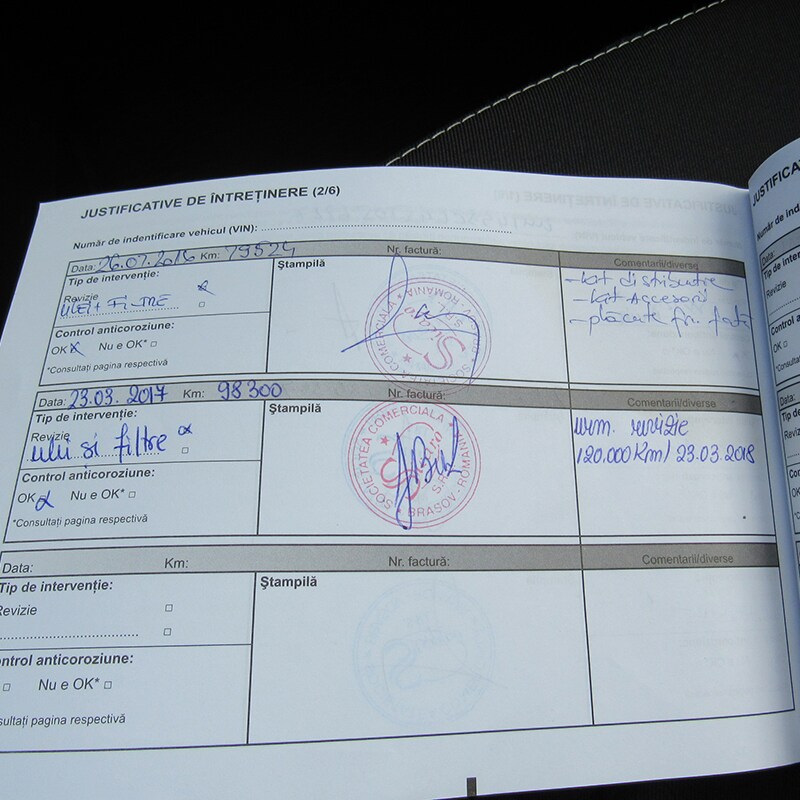 JUSTIFICATIVE DE ÎNTREȚINERE (2/6)
Număr de indentificare vehicul (VIN):
Data: 26.07.2016 Km: 79524 Nr. factură: Comentarii/diverse
Tip de intervenție:
Revizie
ulei + Filtre
Control anticoroziune:
OK Nu e OK*
*Consultați pagina respectivă
Ștampilă
SOCIETATEA COMERCIALA ROMANIA
S.R.L.
- kit distributie
- kit Accesorii
- plăcute fr. față
Data: 23.03.2017 Km: 98300 Nr. factură: Comentarii/diverse
Tip de intervenție:
Revizie
ulei si filtre
Control anticoroziune:
OK Nu e OK*
*Consultați pagina respectivă
Ștampilă
SOCIETATEA COMERCIALA
BRASOV - ROMANIA
urm. revizie
120.000 Km / 23.03.2018
Data: Km: Nr. factură: Comentarii/diverse
Tip de intervenție:
Revizie
ntrol anticoroziune:
Nu e OK*
sultați pagina respectivă
Ștampilă
JUSTIFICA
Număr de ind
Data:
Tip de
Control
OK
*Consul
Data:
Tip de